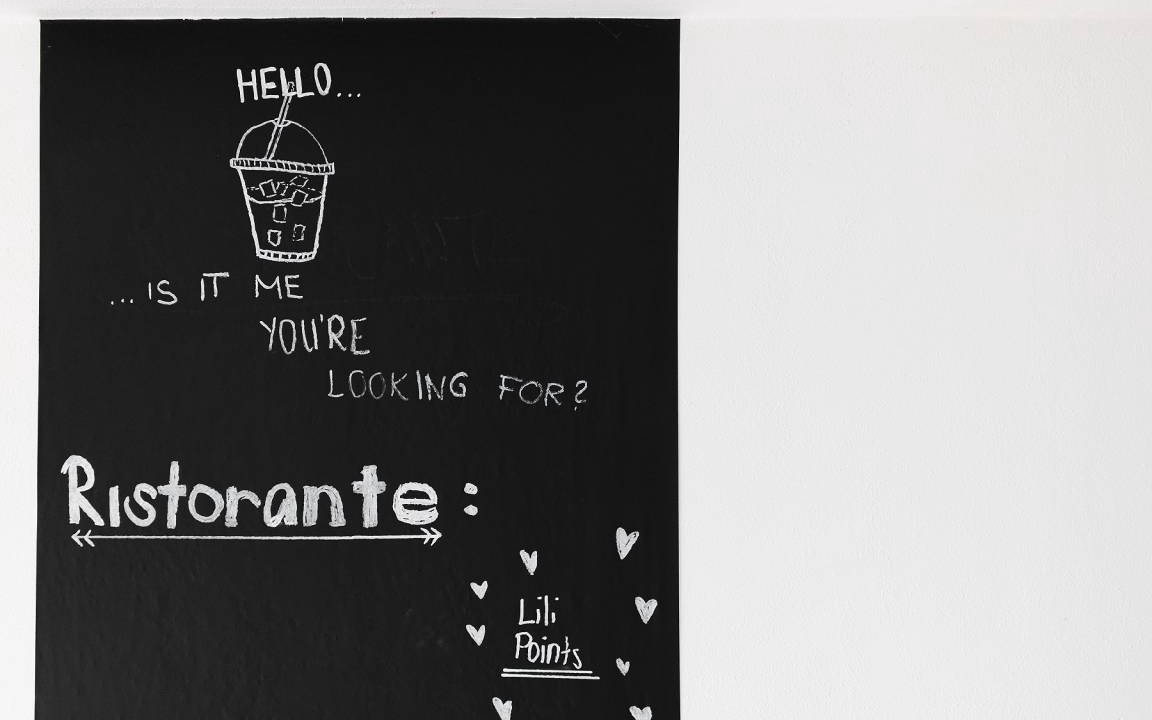 HELLO...
...IS IT ME
YOU'RE
LOOKING FOR?
Ristorante:
Lili
Points